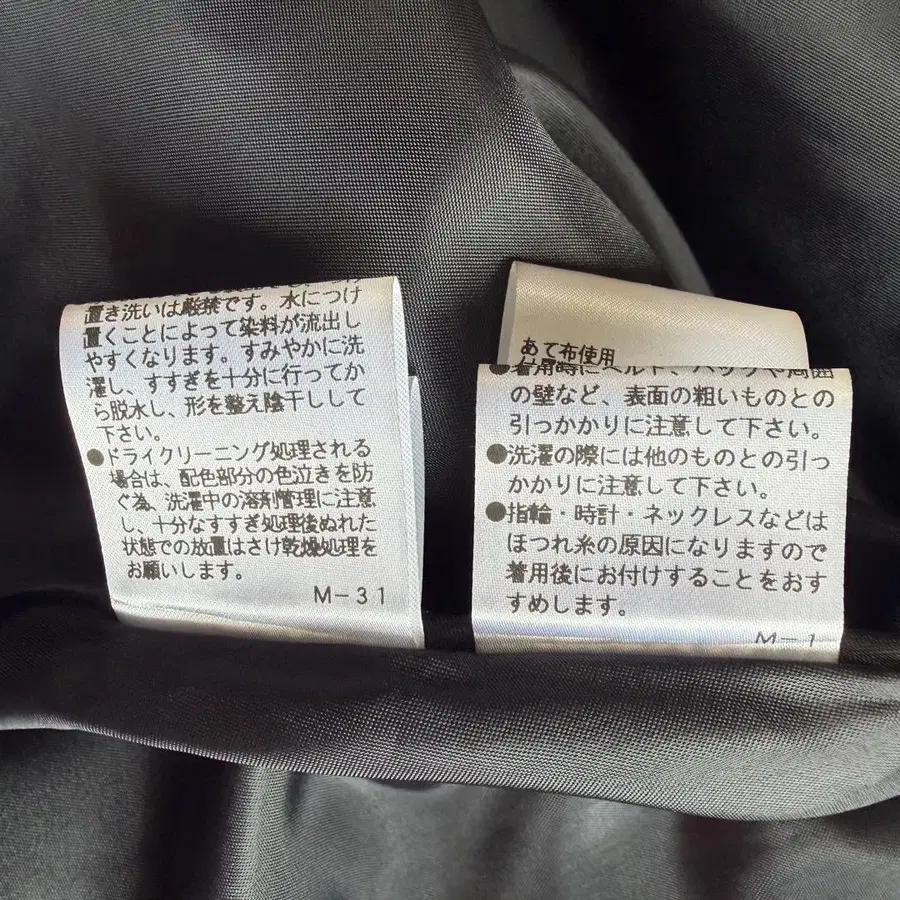 置き洗いは厳禁です。水につけ
置くことによって染料が流出し
やすくなります。すみやかに洗
濯し、すすぎを十分に行ってか
ら脱水し、形を整え陰干しして
下さい。
●ドライクリーニング処理される
場合は、配色部分の色泣きを防
ぐ為、洗濯中の溶剤管理に注意
し、十分なすすぎ処理後ぬれた
状態での放置はさけ乾燥処理を
お願いします。
M-31
あて布使用
●着用時にベルト、バッグや周囲
の壁など、表面の粗いものとの
引っかかりに注意して下さい。
●洗濯の際には他のものとの引っ
かかりに注意して下さい。
●指輪・時計・ネックレスなどは
ほつれ糸の原因になりますので
着用後にお付けすることをおす
すめします。
M-1